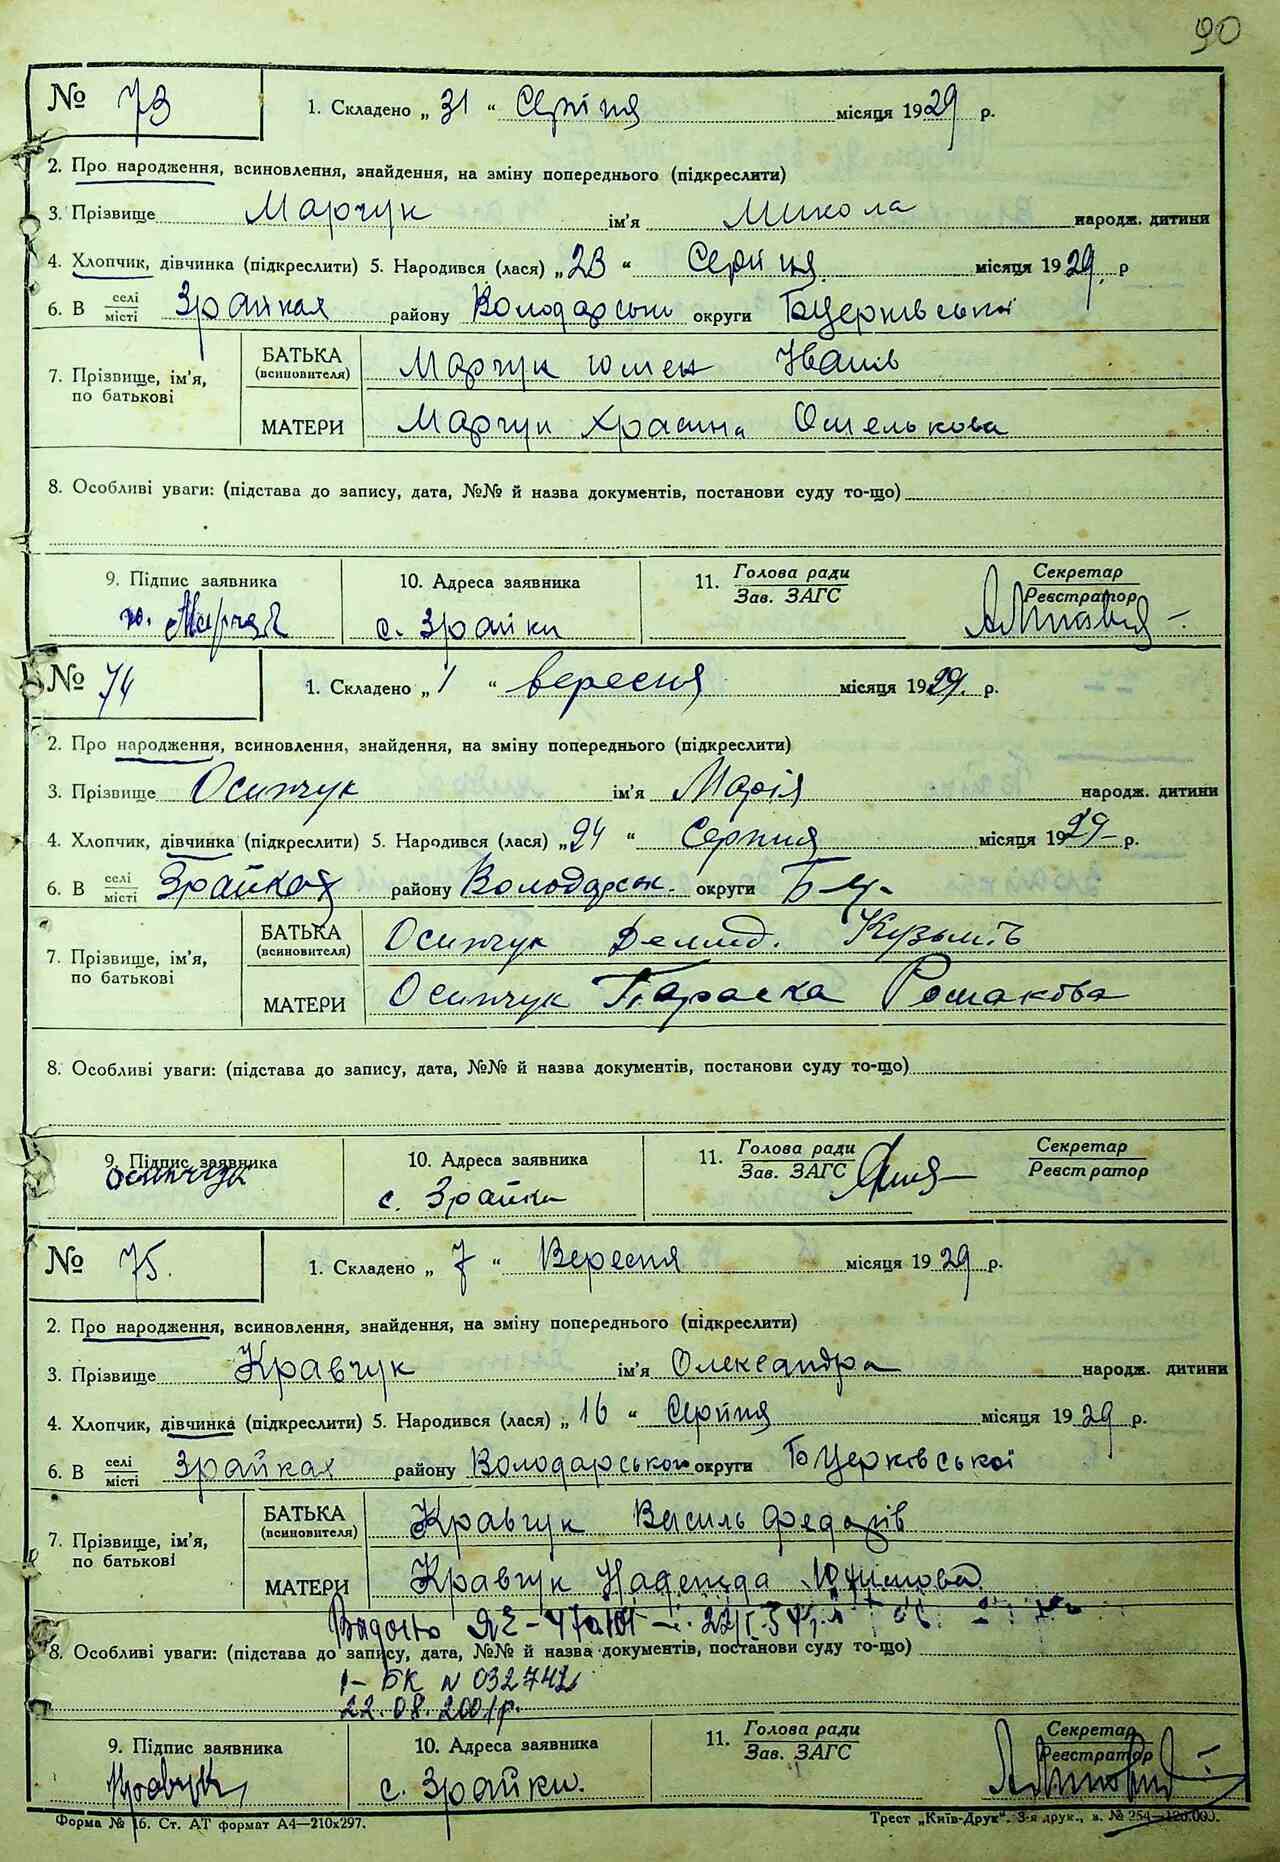 90
№ 73 1. Складено „ 31 “ Серпня місяця 1929 р.
2. Про народження, всиновлення, знайдення, на зміну попереднього (підкреслити)
3. Прізвище Марчук ім'я Микола народж. дитини
4. Хлопчик, дівчинка (підкреслити) 5. Народився (лася) „ 23 “ Серпня місяця 1929 р
6. В селі місті Зрайках району Володарськ округи БЦерківської
7. Прізвище, ім'я, по батькові
БАТЬКА (всиновителя) Марчук Юмен Іванів
МАТЕРИ Марчук Омелькова
8. Особливі уваги: (підстава до запису, дата, №№ й назва документів, постанови суду то-що)
9. Підпис заявника 10. Адреса заявника 11. Голова ради Зав. ЗАГС Секретар Реєстратор
с. Зрайки
№ 74 1. Складено „ 1 “ вересня місяця 1929. р.
2. Про народження, всиновлення, знайдення, на зміну попереднього (підкреслити)
3. Прізвище Осипчук ім'я Марія народж. дитини
4. Хлопчик, дівчинка (підкреслити) 5. Народився (лася) „ 24 “ Серпня місяця 1929 р.
6. В селі місті Зрайках району Володарськ. округи Б Ц.
7. Прізвище, ім'я, по батькові
БАТЬКА (всиновителя) Осипчук Кузьмів
МАТЕРИ Осипчук Параска Романова
8. Особливі уваги: (підстава до запису, дата, №№ й назва документів, постанови суду то-що)
9. Підпис заявника 10. Адреса заявника 11. Голова ради Зав. ЗАГС Секретар Реєстратор
Осипчук с. Зрайки
№ 75. 1. Складено „ 7 “ Вересня місяця 1929 р.
2. Про народження, всиновлення, знайдення, на зміну попереднього (підкреслити)
3. Прізвище Кравчук ім'я Олександра народж. дитини
4. Хлопчик, дівчинка (підкреслити) 5. Народився (лася) „ 16 “ Серпня місяця 1929 р.
6. В селі місті Зрайках району Володарського округи БЦерківської
7. Прізвище, ім'я, по батькові
БАТЬКА (всиновителя) Кравчук Василь Федорів
МАТЕРИ Кравчук Надежда Юхимова
8. Особливі уваги: (підстава до запису, дата, №№ й назва документів, постанови суду то-що)
1-БК N 032742
22.08.2001р.
9. Підпис заявника 10. Адреса заявника 11. Голова ради Зав. ЗАГС Секретар Реєстратор
Кравчук с. Зрайки.
Форма № 16. Ст. АТ формат А4—210x297. Трест „Київ-Друк“. 3-я друк., з. № 254—120.000.